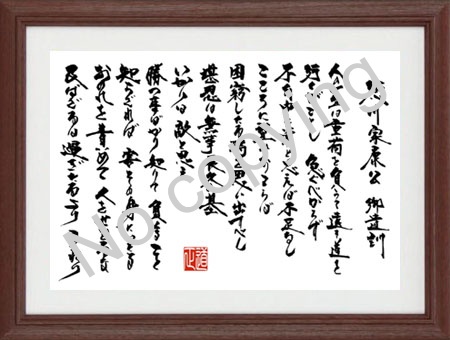 徳川家康公 御遺訓
人の一生は重荷を負うて遠き道を
行くがごとし 急ぐべからず
不自由を常と思えば不足なし
こころに望みおこらば
困窮したる時を思い出すべし
堪忍は無事長久の基
いかりは敵と思え
勝つ事ばかり知りて 負くること
知らざれば 害その身にいたる
おのれを責めて 人をせむるな
及ばざるは過ぎたるよりまされり
No copying